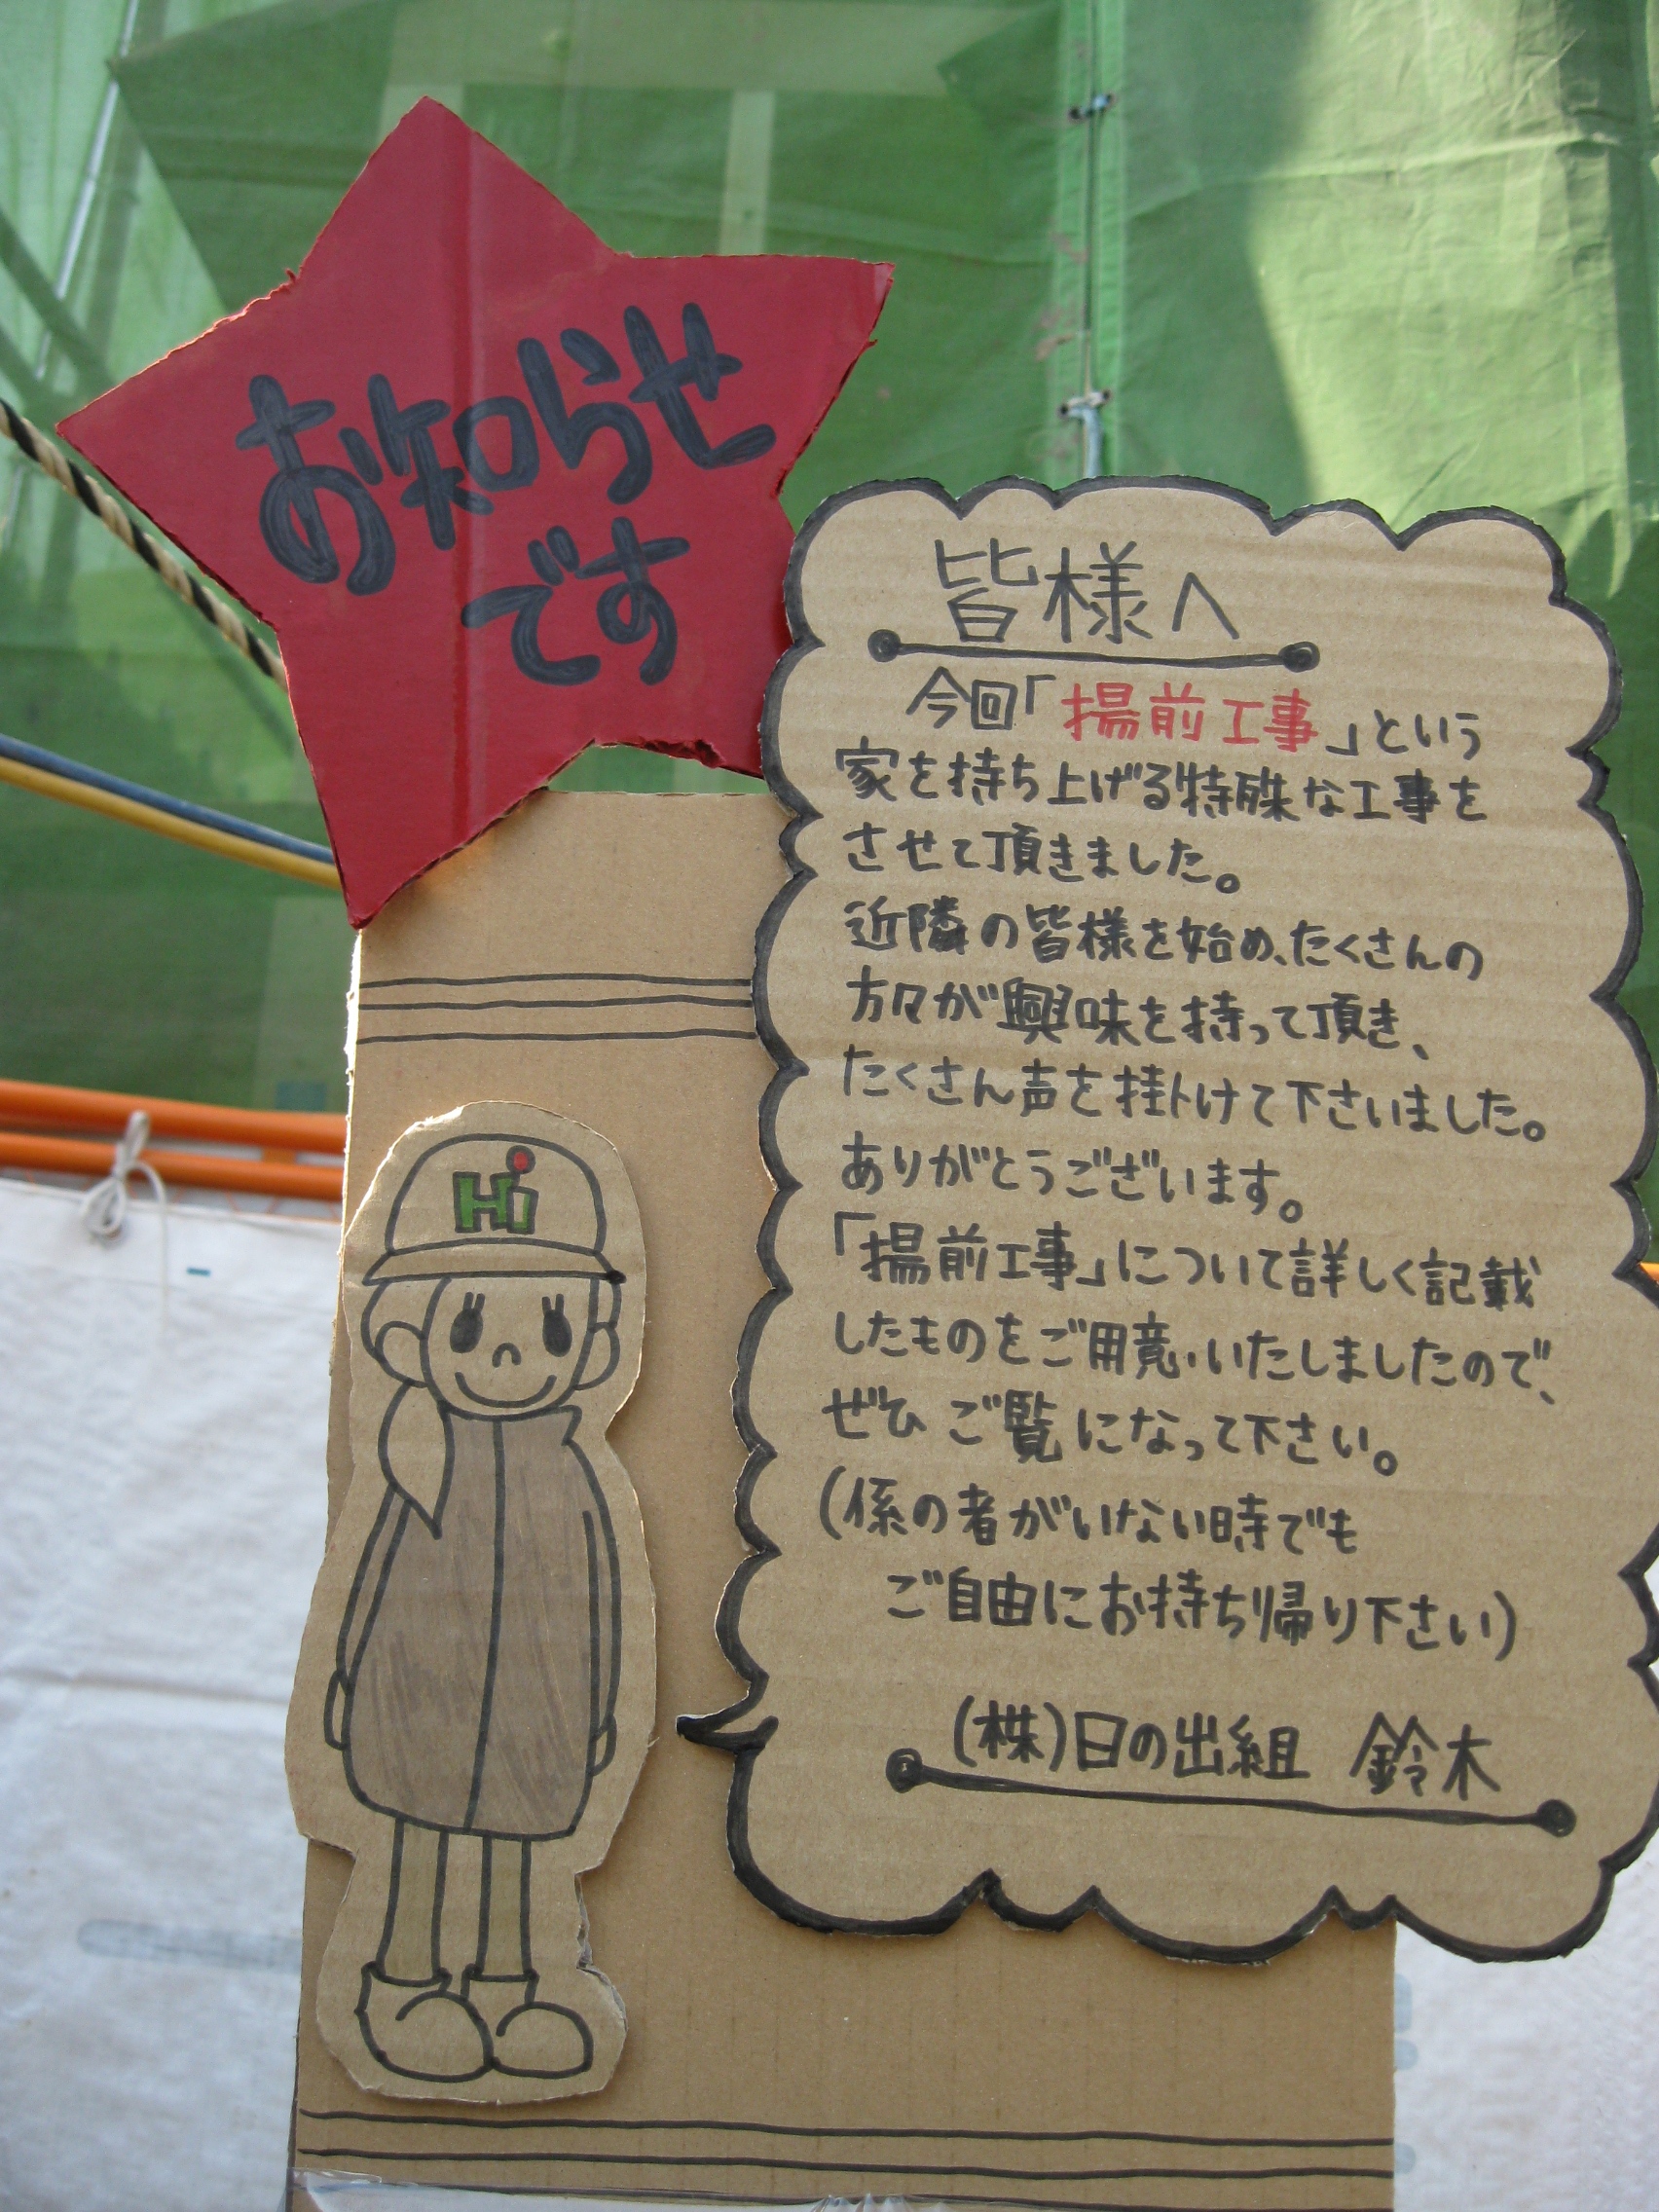 お知らせ
です
皆様へ
今回「揚前工事」という
家を持ち上げる特殊な工事を
させて頂きました。
近隣の皆様を始め、たくさんの
方々が興味を持って頂き、
たくさん声を掛けて下さいました。
ありがとうございます。
「揚前工事」について詳しく記載
したものをご用意いたしましたので、
ぜひご覧になって下さい。
(係の者がいない時でも
ご自由にお持ち帰り下さい)
(株)日の出組 鈴木
Hi